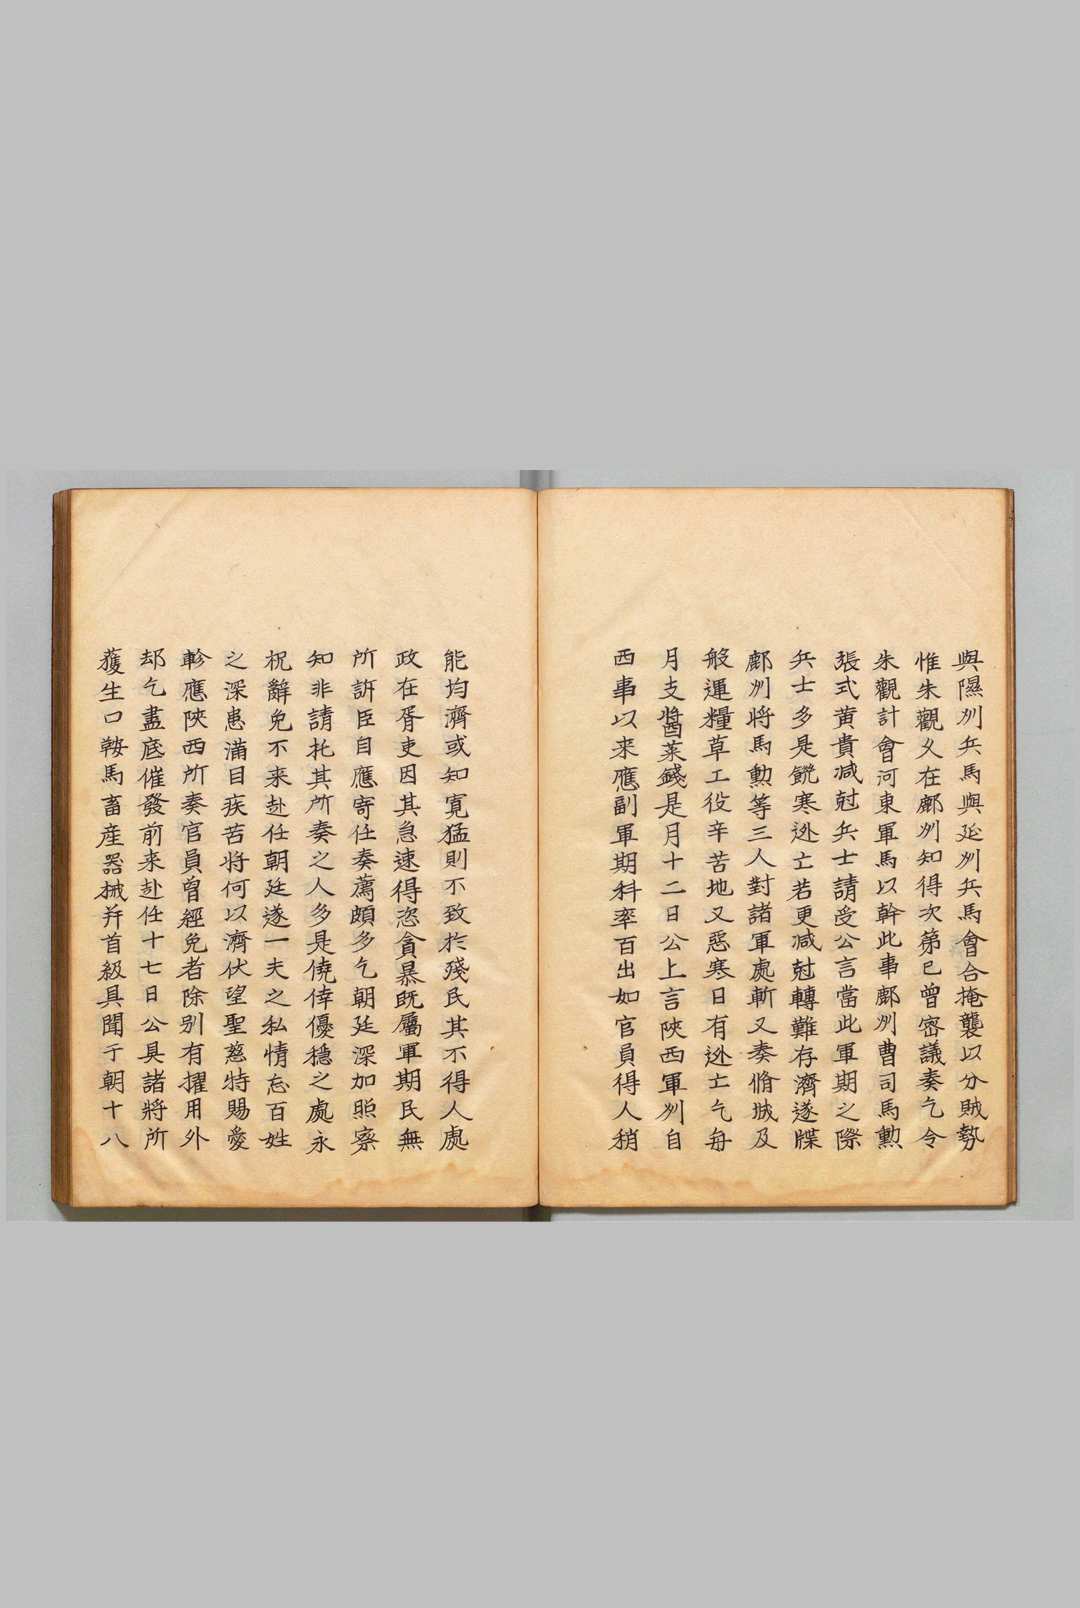 與隰州兵馬與延州兵馬會合掩襲以分賊勢
惟朱觀久在鄜州知得次第已曾密議奏乞令
朱觀計會河東軍馬以幹此事鄜州曹司馬勲
張式黄貴减尅兵士請受公言當此軍期之際
兵士多是饑寒迯亡若更减尅轉難存濟遂牒
鄜州將馬勲等三人對諸軍處斬又奏脩城及
般運糧草工役辛苦地又惡寒日有迯亡乞每
月支醬菜錢是月十二日公上言陝西軍州自
西事以来應副軍期科率百出如官員得人稍
能均濟或知寬猛則不致扵殘民其不得人處
政在胥吏因其急速得恣貪暴既屬軍期民無
所訴臣自應寄任奏薦頗多乞朝廷深加照察
知非請托其所奏之人多是僥倖優穩之處永
祝辭免不来赴任朝廷遂一夫之私情忘百姓
之深患滿目疾苦將何以濟伏望聖慈特賜愛
軫應陝西所奏官員曾經免者除别有擢用外
却乞盡底催發前来赴任十七日公具諸將所
獲生口鞍馬畜産器械并首級具聞于朝十八